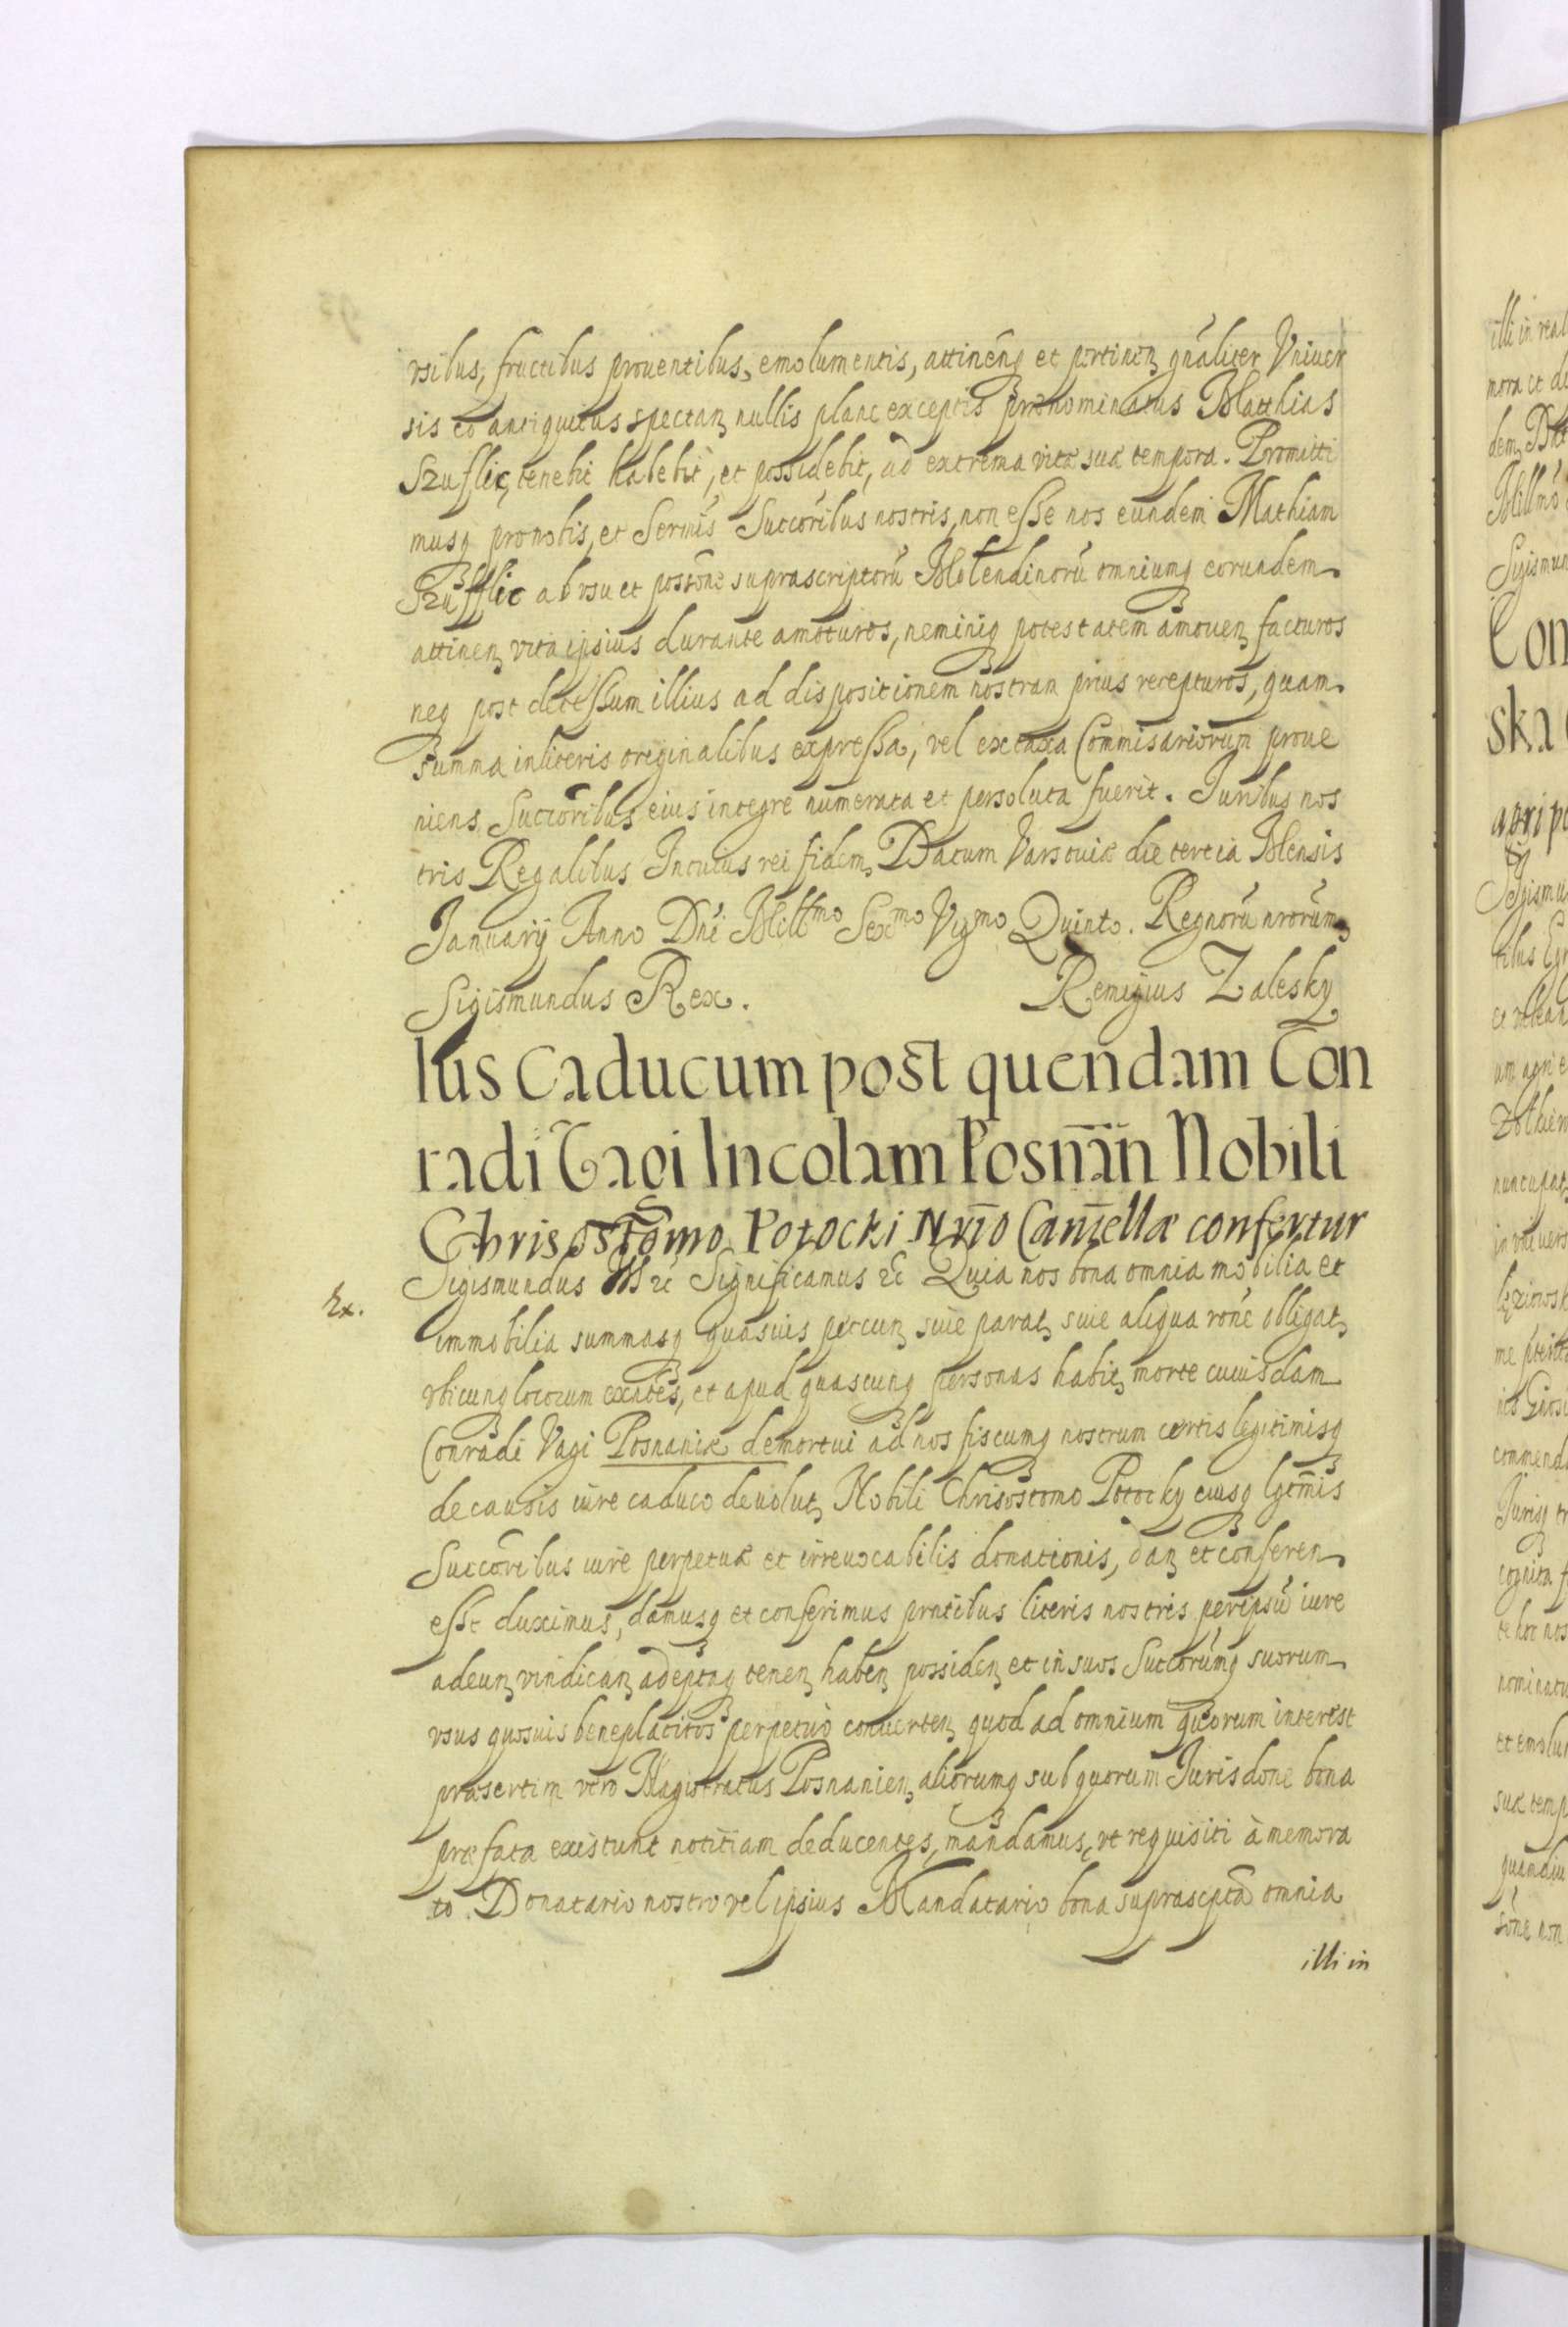 vsibus, fructibus prouentibus, emolumentis, attinẽnꝗ et ꝑtineñ gñaliter Vniuer
sis eo antiquitus spectañ nullis plane exceptis prænominatus Matthias
Szuflic, tenebit habebit, et possidebit, ad extrema vitæ suæ tempora. Promitti
musꝗ pro nobis, et Sermis Succoribus nostris, non esse nos eundem Mathiam
Szufflic ab vsu et possone suprascriptorũ Molendinorũ omniumꝗ eorundem
attineñ vita ipsius durante amoturos, neminiꝗ potestatem amoueñ facturos
neꝗ post decessum illius ad dispositionem nostram prius recepturos, quam
summa in literis originalibus expressa, vel ex taxa Commisariorum proue
niens Succoribus eius integre numerata et persoluta fuerit. Juribus nos
tris Regalibus In cuius rei fidem Datum Varsouiæ die tertia Mensis
Januarij Anno Dñi Mill̃mo Sexmo Vigmo Quinto. Regnorũ nrorum
Sigismundus Rex. Remigius Zalesky
Ius Caducum post quendam Con
radi Vagi Incolam Posnãn Nobili
Chrisostomo Potocki Nrio Canɫellæ confertur
Ex.
Sigismundus III rc̃ Significamus rc̃ Quia nos bona omnia mobilia et
immobilia summasꝗ quasuis pecuñ siue parat, siue aliqua rone obligat,
vbicunꝗ locorum exntes, et apud quascunꝗ personas habit, morte cuiusdam
Conradi Vagi Posnaniæ demortui ad nos fiscumꝗ nostrum certis legitimisꝗ
de causis iure caduco deuolut, Nobili Chrisostomo Potocky eiusꝗ lgtmis
Succoribus iure perpetuæ et irreuocabilis donationis, dañ et conferen
esse duximus, damusꝗ et conferimus prntibus literis nostris per ipsũ iure
adeuñ vindicañ adeptaꝗ teneñ habeñ possideñ et in suos Succorumꝗ suorum
vsus quosuis beneplacitos perpetuò conuerteñ quod ad omnium quorum interest
præsertim vero Magistratus Posnanien, aliorumꝗ sub quorum Jurisdone bona
præfata existunt notitiam deducentes, mandamus, vt requisiti à memora
to Donatario nostro vel ipsius Mandatario bona suprascpta omnia
illi in